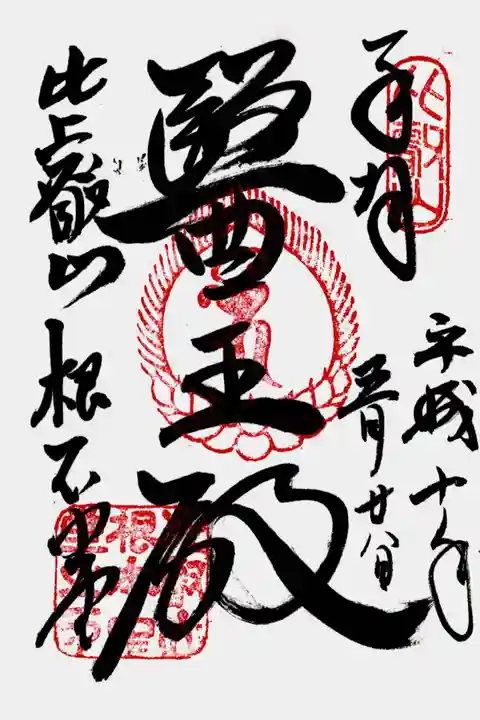 奉拝
平成十年
五月廿八日
醫王殿
比叡山 根本中堂
比叡山